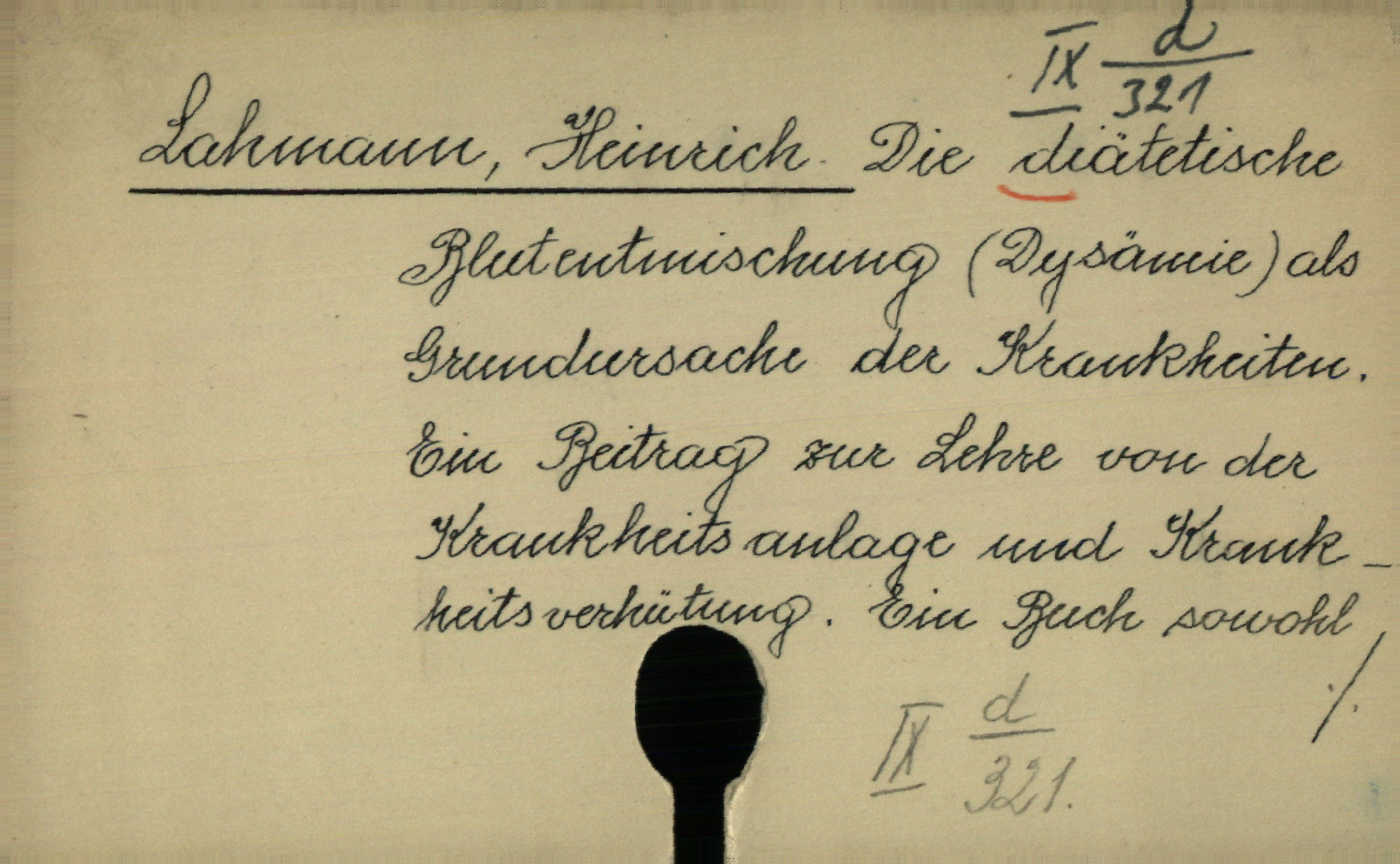 IX d/321
Lahmann, Heinrich. Die diätetische
Blutentmischung (Dysämie) als
Grundursache der Krankheiten.
Ein Beitrag zur Lehre von der
Krankheitsanlage und Krank-
heitsverhütung. Ein Buch sowohl
./.
IX d/321.